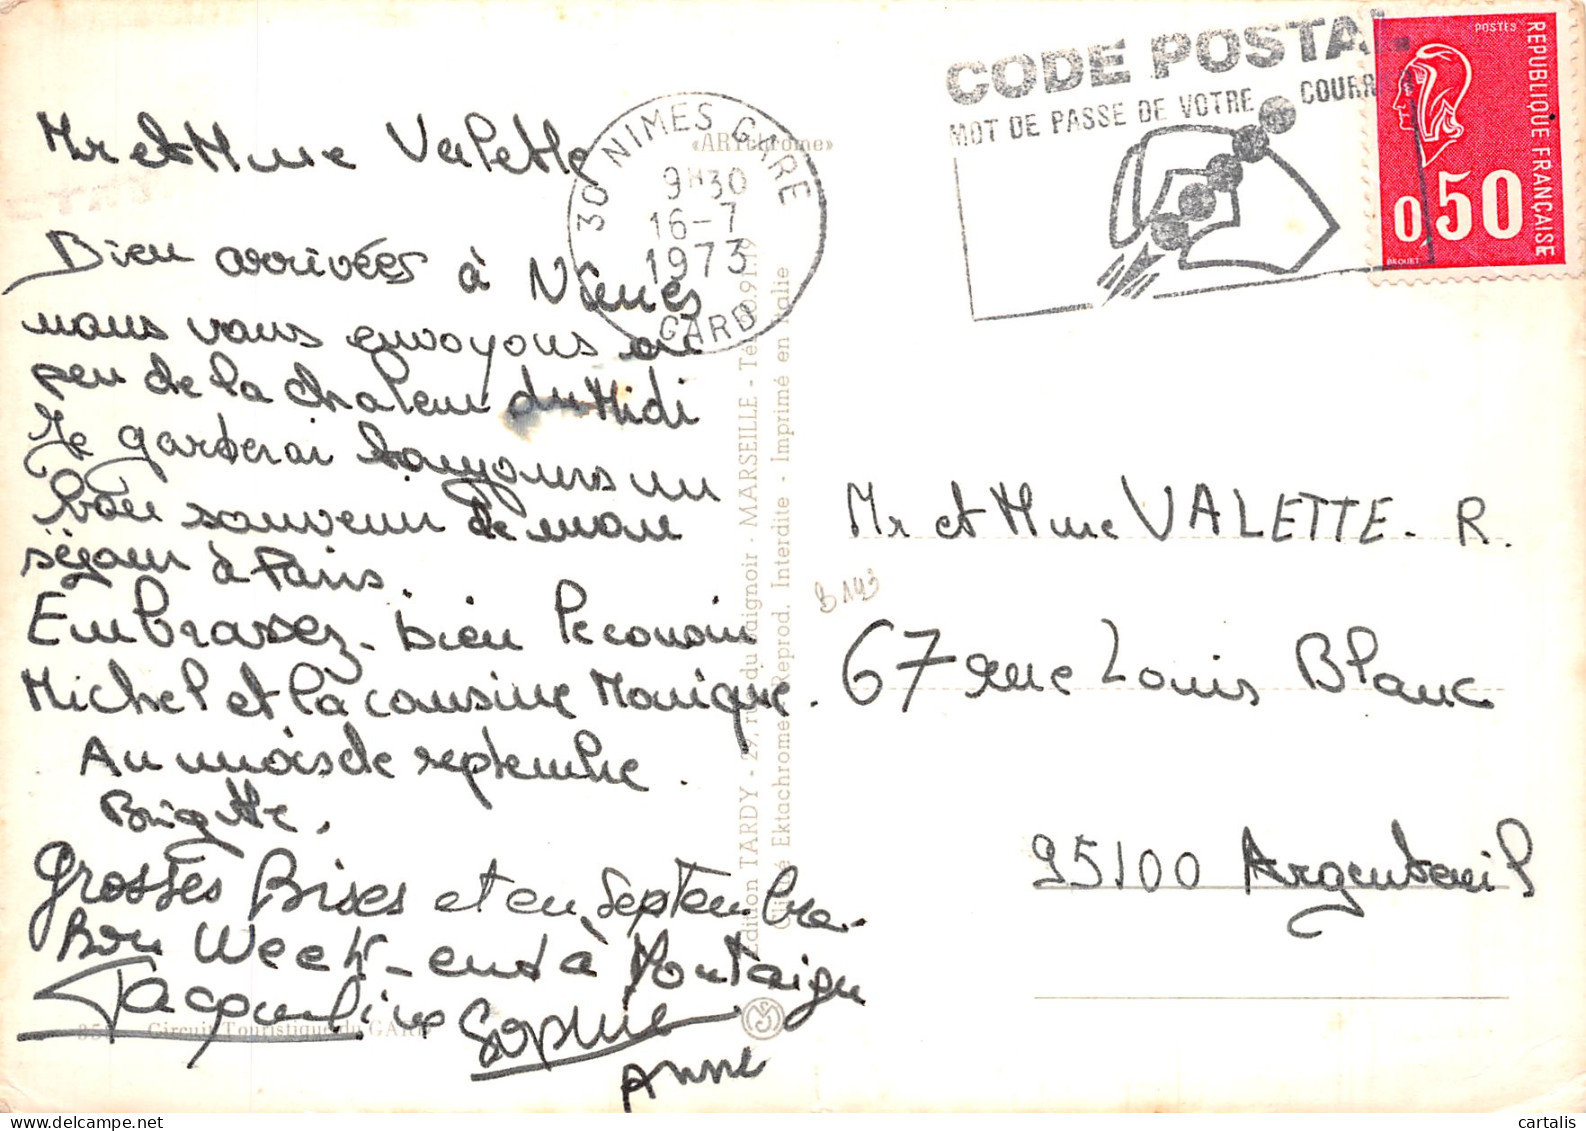 Mr et Mme Valette
Bien arrivées à Nîmes
nous vous envoyons un
peu de la chaleur du Midi
Je garderai toujours un
bon souvenir de mon
séjour à Paris.
Embrassez-bien le cousin
Michel et la cousine Monique.
Au mois de septembre.
Brigitte.
Grosses Bises et en Septembre.
Bon Week-end à Montaigu
Jacqueline Sophie
Anne
Circuit Touristique du GARD
«ARYchrome»
30 NIMES GARE
9H30
16-7
1973
GARD
CODE POSTAL
MOT DE PASSE DE VOTRE COURRIER
POSTES
REPUBLIQUE FRANÇAISE
0,50
BEQUET
Edition TARDY - 29, rue du Baignoir - MARSEILLE - Tél.
Cliché Ektachrome Reprod. Interdite - Imprimé en Italie
B193
Mr et Mme VALETTE. R.
67 rue Louis Blanc
95100 Argenteuil
cartalis